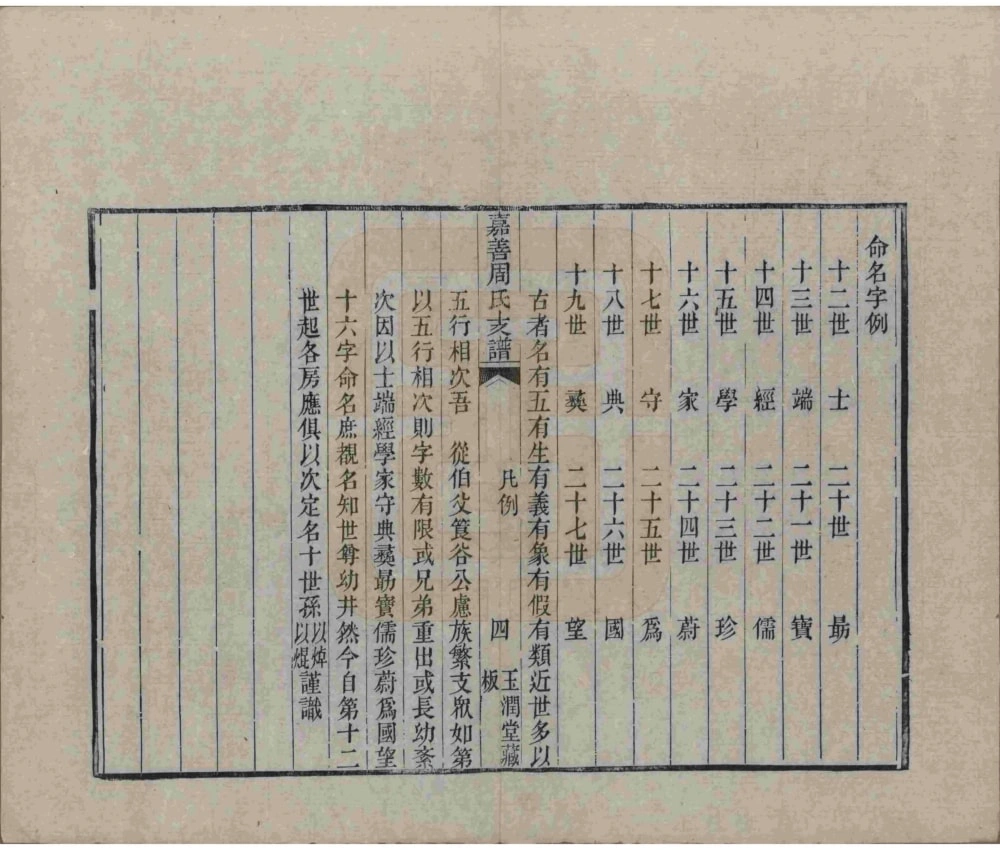 命名字例
十二世　士　二十世　勗
十三世　端　二十一世　寶
十四世　經　二十二世　儒
十五世　學　二十三世　珍
十六世　家　二十四世　蔚
十七世　守　二十五世　爲
十八世　典　二十六世　國
十九世　彝　二十七世　望
古者名有五有生有義有象有假有類近世多以
嘉善周氏支譜　凡例　四　玉潤堂藏板
五行相次吾　從伯父篔谷公慮族繁支衆如第
以五行相次則字數有限或兄弟重出或長幼紊
次因以士端經學家守典彝勗寶儒珍蔚爲國望
十六字命名庶覩名知世尊幼井然今自第十二
世起各房應俱以次定名十世孫以焯以焜謹識